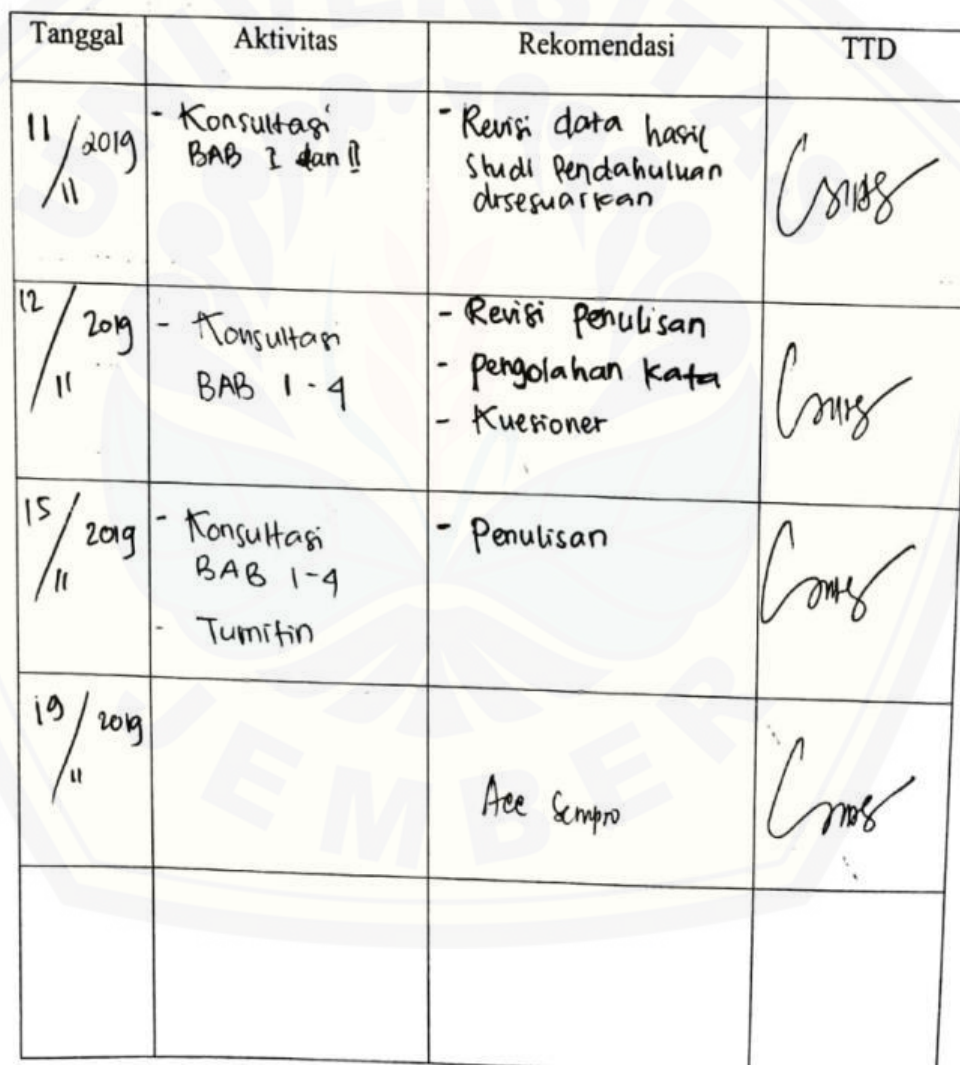 UNIVERSITAS
JEMBER
Tanggal Aktivitas Rekomendasi TTD
11/11 2019
- Konsultasi
BAB I dan II
- Revisi data hasil
Studi Pendahuluan
disesuaikan
12/11 2019
- Konsultasi
BAB 1-4
- Revisi penulisan
- pengolahan kata
- Kuesioner
15/11 2019
- Konsultasi
BAB 1-4
- Turnitin
- Penulisan
19/11 2019
Acc Sempro